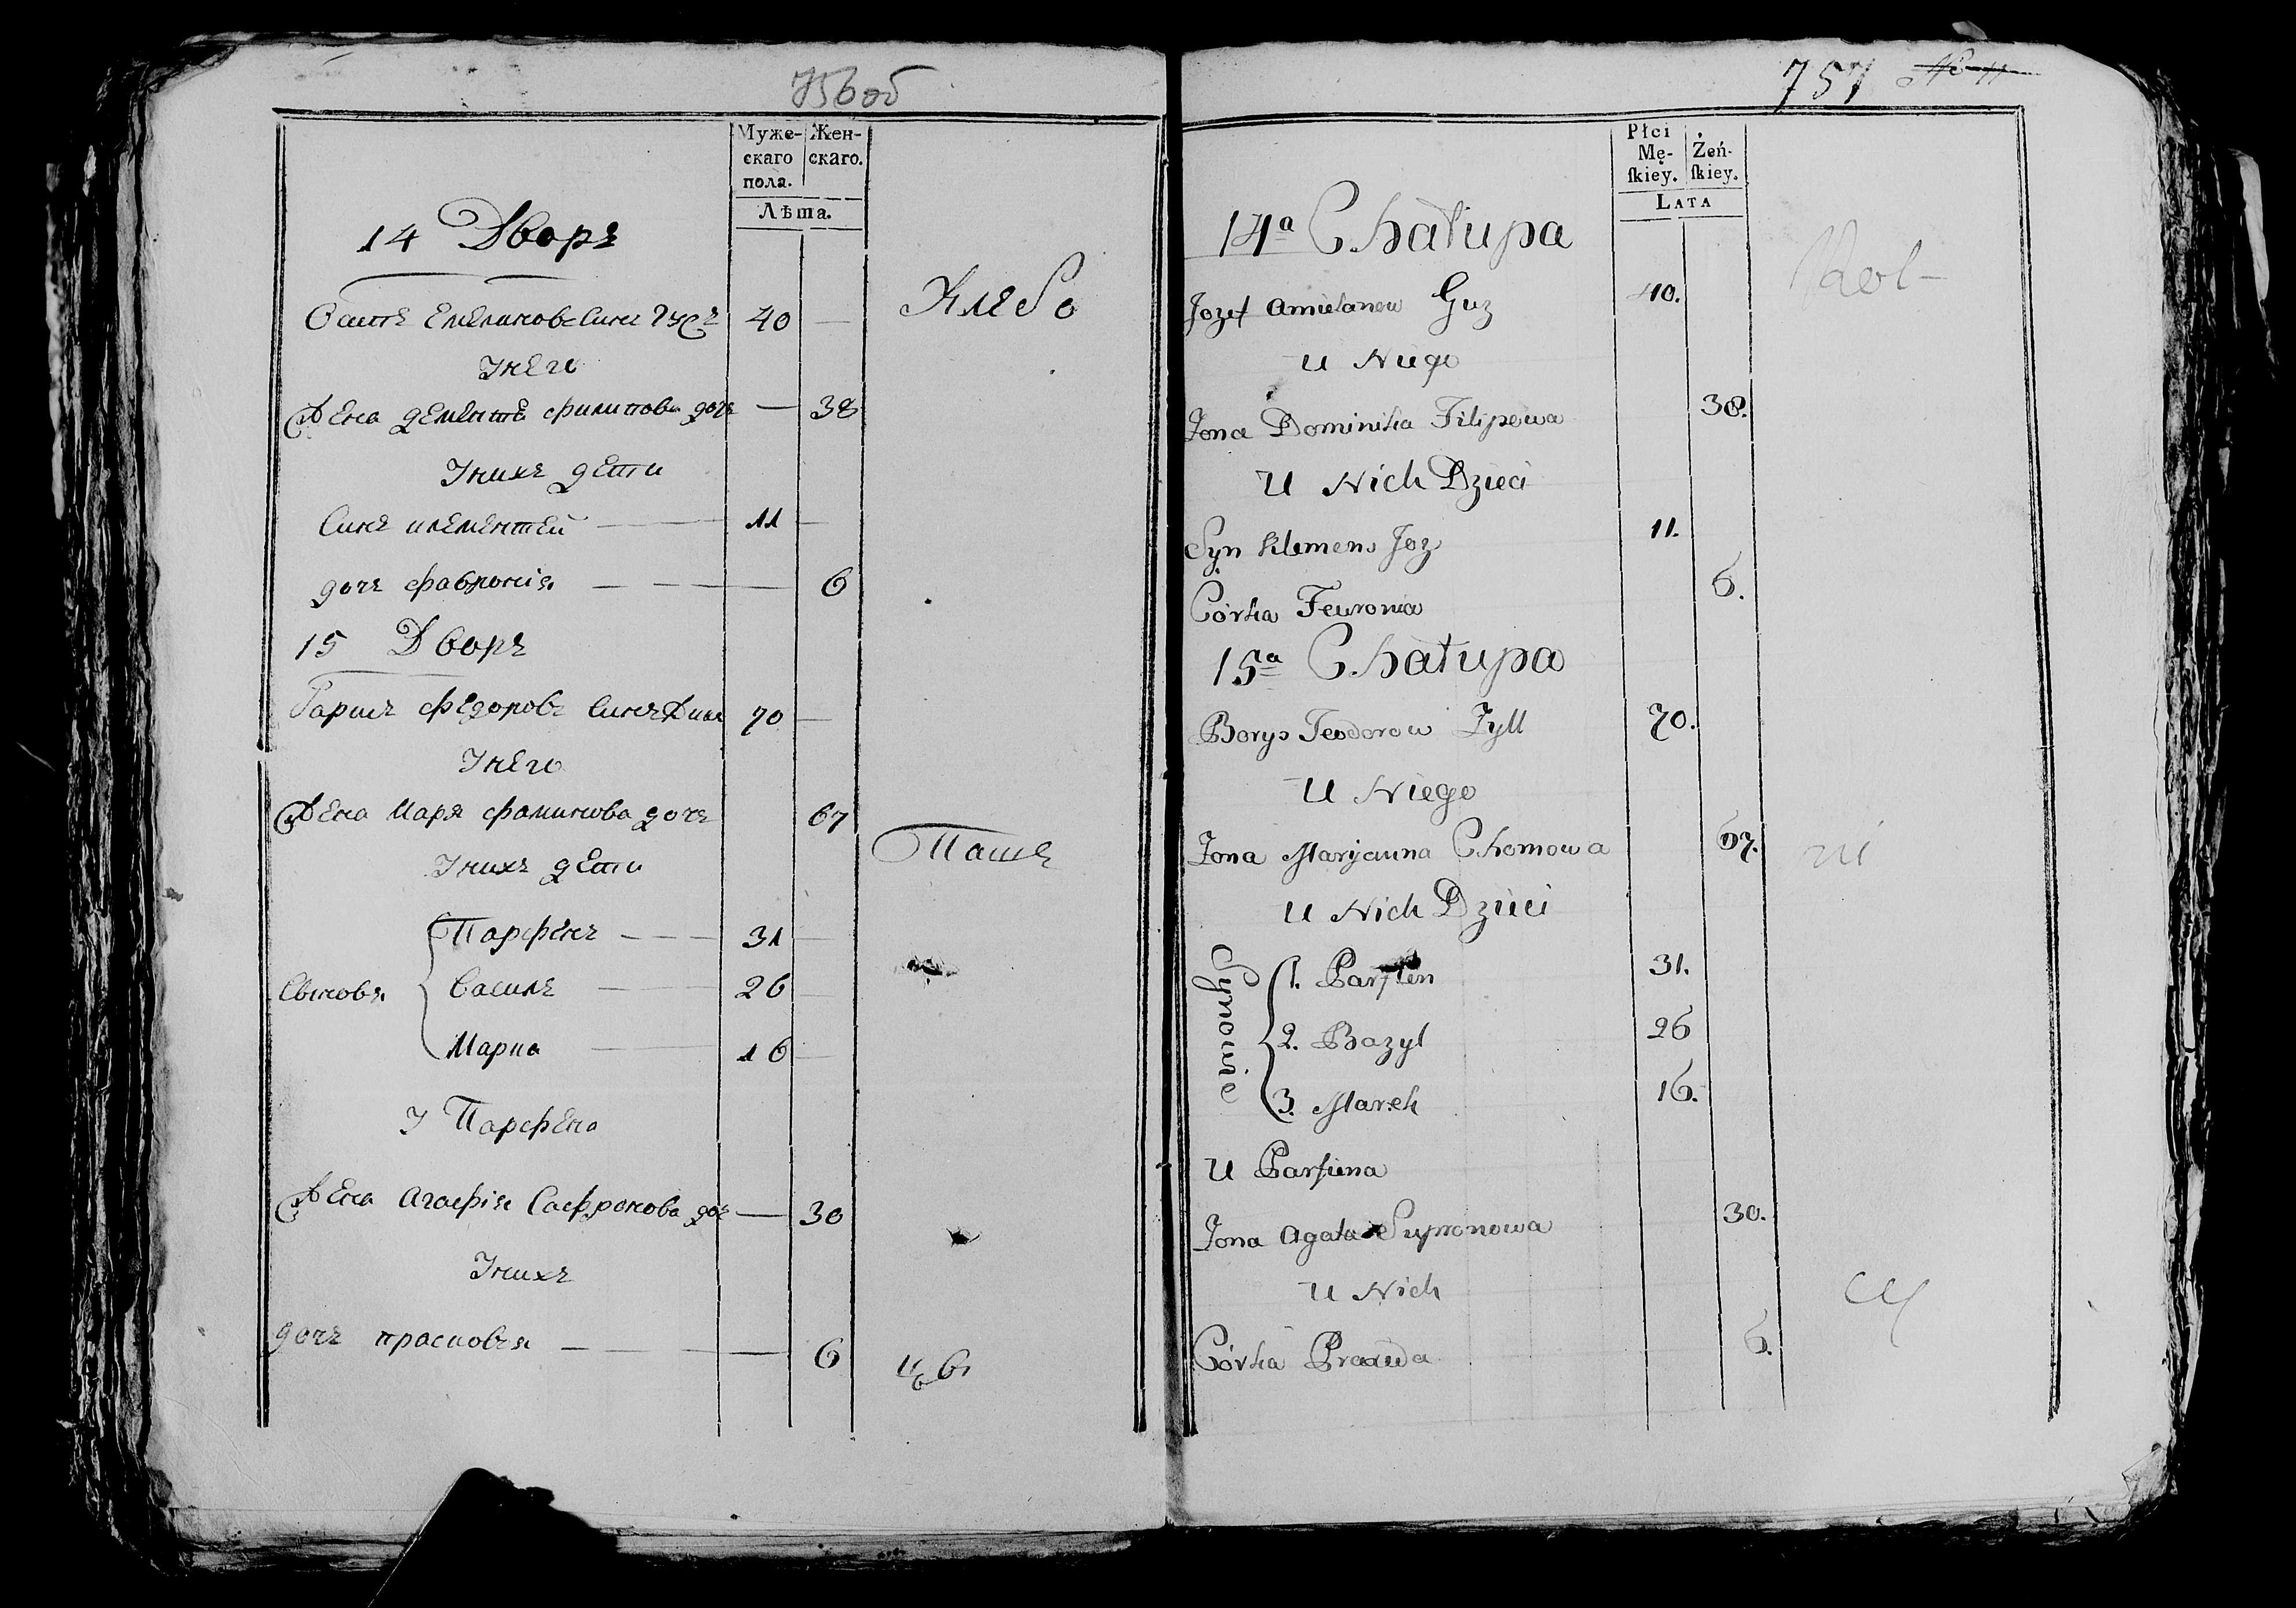 756об
Муже-
скаго
пола.
Жен-
скаго.
Лѣта.
14 Дворъ
Емелиновъ Синъ Гузъ 40 —
Унего
Жена филипова дочъ — 38
Унихъ дети
Синъ клементей — 11 —
дочъ фавронія — — — 6
15 Дворъ
Барисъ федоровъ Синъ Жил 70 —
Унего
Жена Маря фамиһова дочъ 67
Унихъ дети
Парфенъ — 31 —
Синовя Василъ — 26 —
Марка — 16 —
У Парфена
Жена Агафія Сафронова доч — 30
Унихъ
дочъ прасковъя — — — 6
Хлебо
Пашъ
757
Płci
Mę-
ſkiey.
Żeń-
ſkiey.
LATA
14ª Chałupa
Jozef Amielanow Guz 40.
U Niego
Żona Dominika Filipowa 38.
U Nich Dzieci
Syn Klemens Joz 11.
Córka Fewronia 6.
15ª Chałupa
Borys Teodorow Żyll 70.
U Niego
Żona Maryanna Chomowa 67.
U Nich Dzieci
Synowie
1. Parfien 31.
2. Bazyl 26
3. Marek 16.
U Parfiena
Żona Agata Supronowa 30.
U Nich
Córka Praxeda 6.